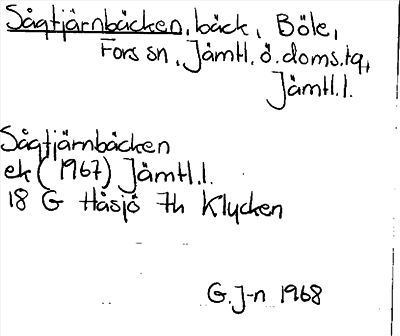 Sågtjärnbäcken, bäck, Böle,
Fors sn, Jämtl. ö. doms.tg,
Jämtl.l.
Sågtjärnbäcken
ek (1967) Jämtl.l.
18 G Håsjö 7h Klycken
G. J-n 1968